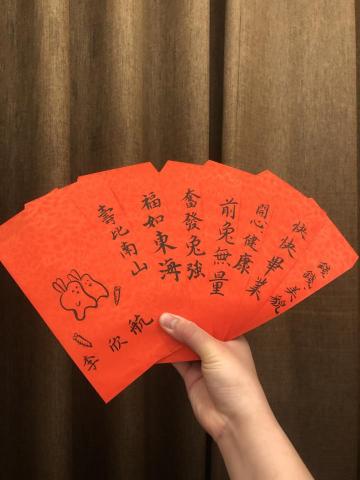 快快畢業
開心健康
前兔無量
奮發兔強
福如東海
壽比南山
李欣航